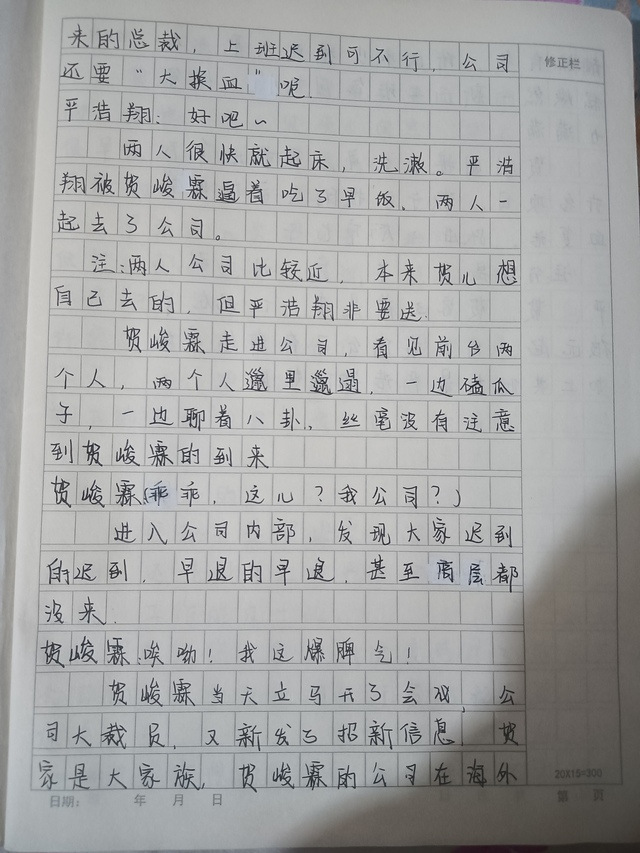 来的总裁，上班迟到可不行，公司
修正栏
还要“大换血”呢.
严浩翔：好吧~
两人很快就起床，洗漱。严浩
翔被贺峻霖逼着吃了早饭、两人一
起去了公司。
注：两人公司比较近，本来贺儿想
自己去的，但严浩翔非要送.
贺峻霖走进公司，看见前台两
个人，两个人邋里邋遢，一边磕瓜
子，一边聊着八卦、丝毫没有注意
到贺峻霖的到来
贺峻霖(乖乖，这儿？我公司？)
进入公司内部，发现大家迟到
的迟到，早退的早退，甚至高层都
没来.
贺峻霖：唉呦！我这爆脾气！
贺峻霖当天立马开了会议，公
司大裁员，又新发了招新信息！贺
家是大家族，贺峻霖的公司在海外
20X15=300
日期： 年 月 日 第 页